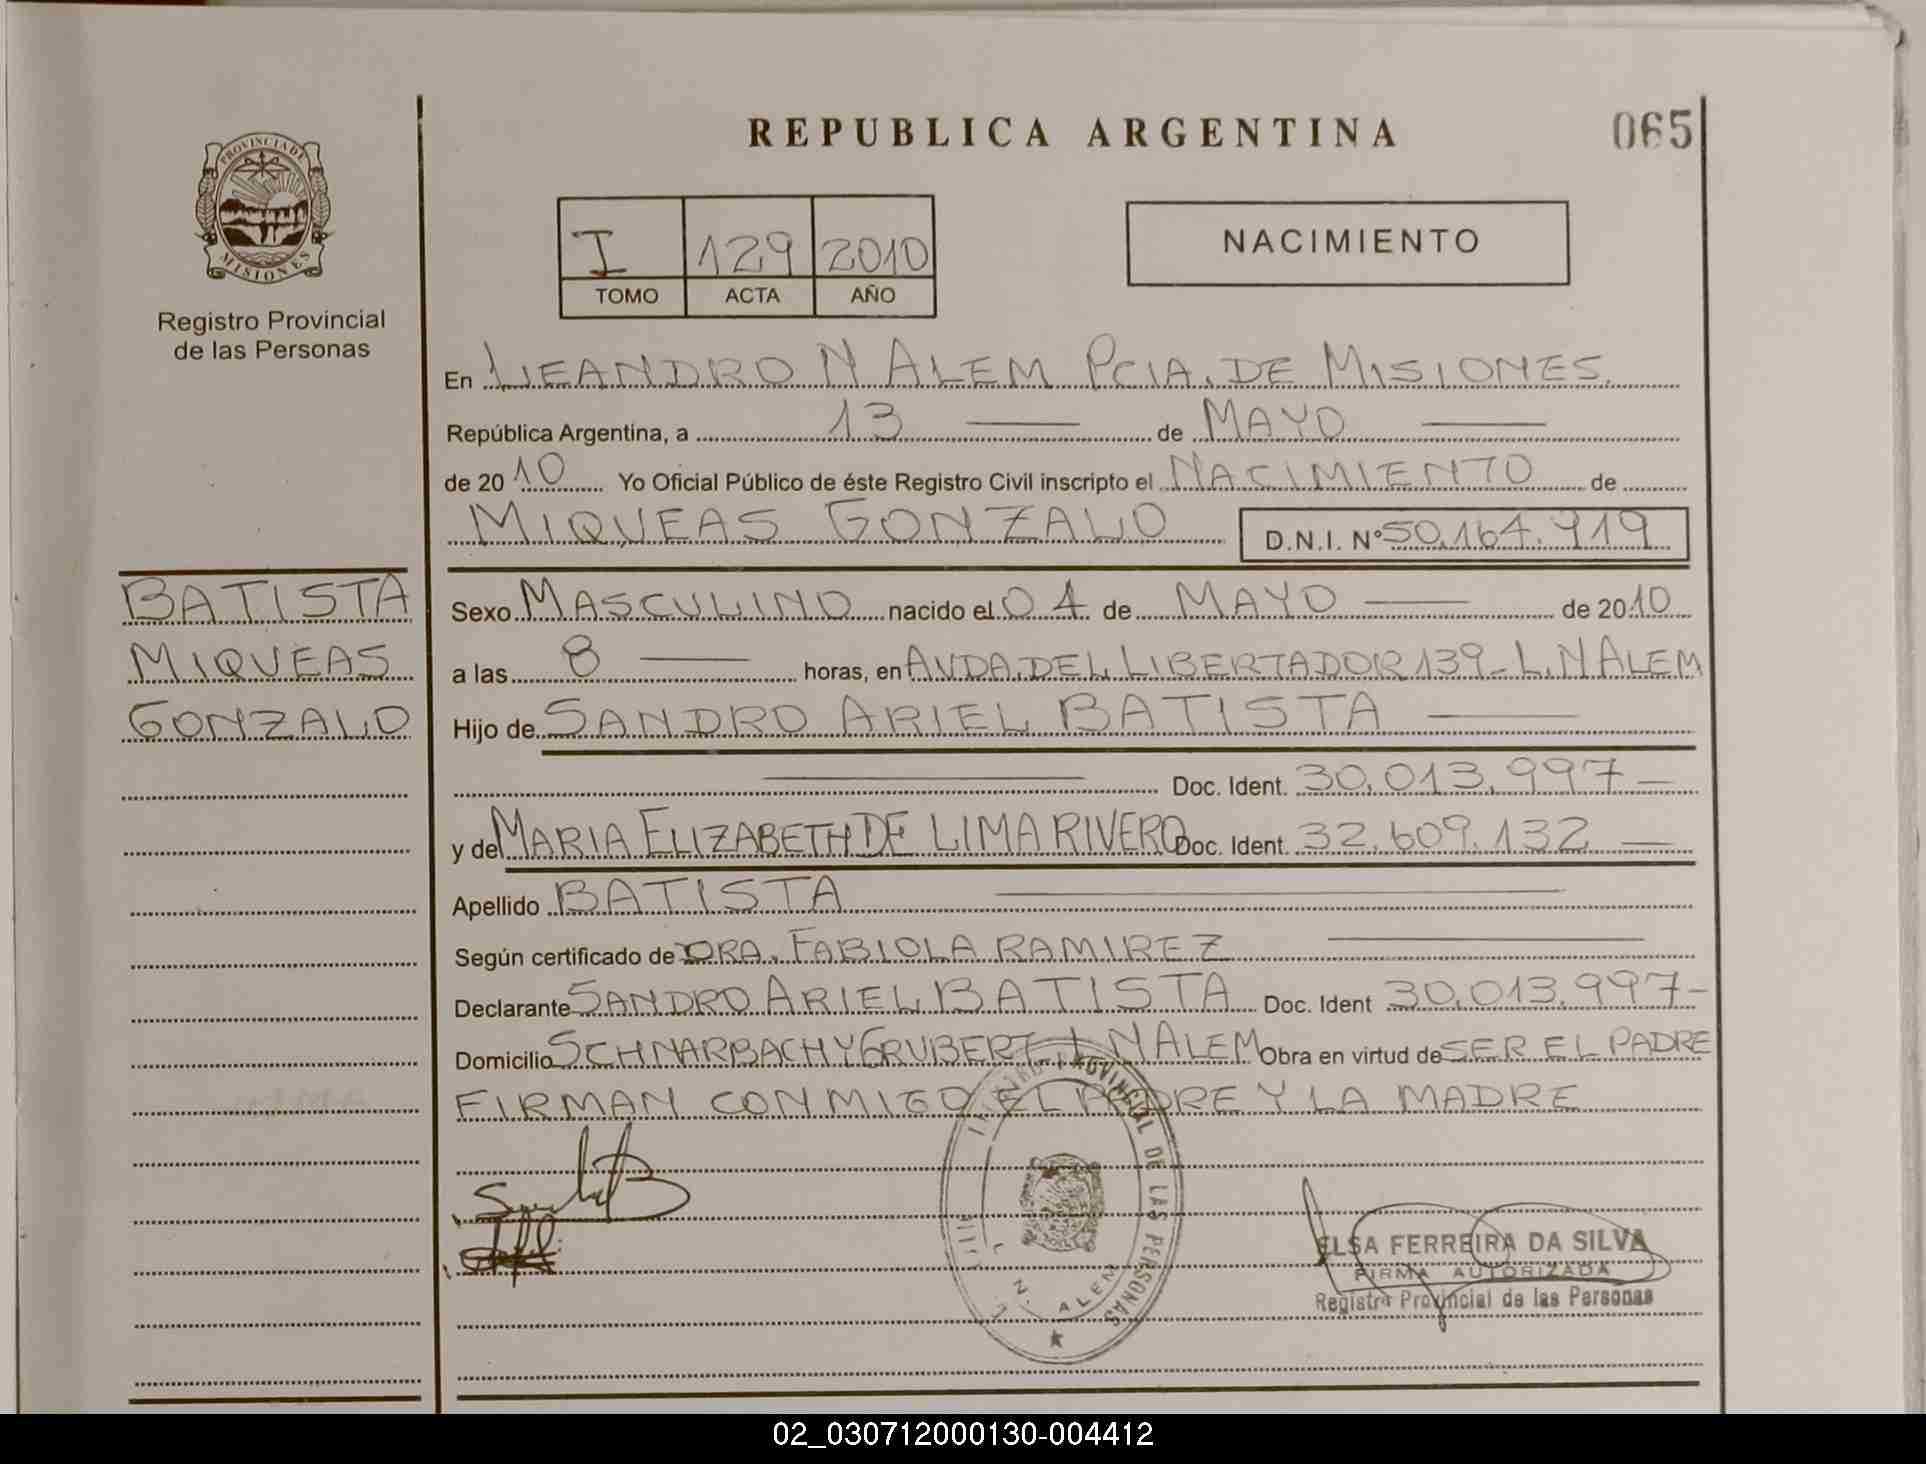 REPUBLICA ARGENTINA
065
PROVINCIA DE
MISIONES
Registro Provincial
de las Personas
I 129 2010
TOMO ACTA AÑO
NACIMIENTO
En LEANDRO N ALEM PCIA. DE MISIONES.
República Argentina, a 13 de MAYO
de 2010 Yo Oficial Público de éste Registro Civil inscripto el NACIMIENTO de
MIQUEAS GONZALO D.N.I. Nº 50.164.919
BATISTA
MIQUEAS
GONZALO
Sexo MASCULINO nacido el 04 de MAYO de 2010
a las 8 horas, en AVDA. DEL LIBERTADOR 139 - L. N ALEM
Hijo de SANDRO ARIEL BATISTA
Doc. Ident. 30.013.997 -
y de MARIA ELIZABETH DE LIMA RIVERO Doc. Ident. 32.609.132 -
Apellido BATISTA
Según certificado de DRA. FABIOLA RAMIREZ
Declarante SANDRO ARIEL BATISTA Doc. Ident 30.013.997 -
Domicilio SCHNARBACH Y GRUBERT. L N ALEM Obra en virtud de SER EL PADRE
FIRMAN CONMIGO EL PADRE Y LA MADRE
PROVINCIAL DE LAS PERSONAS
L. N. ALEM
ELSA FERREIRA DA SILVA
FIRMA AUTORIZADA
Registro Provincial de las Personas
02_030712000130-004412